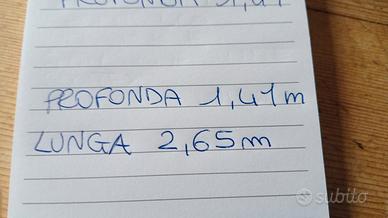 PROFONDA 1,41 m
LUNGA 2,65 m
subito